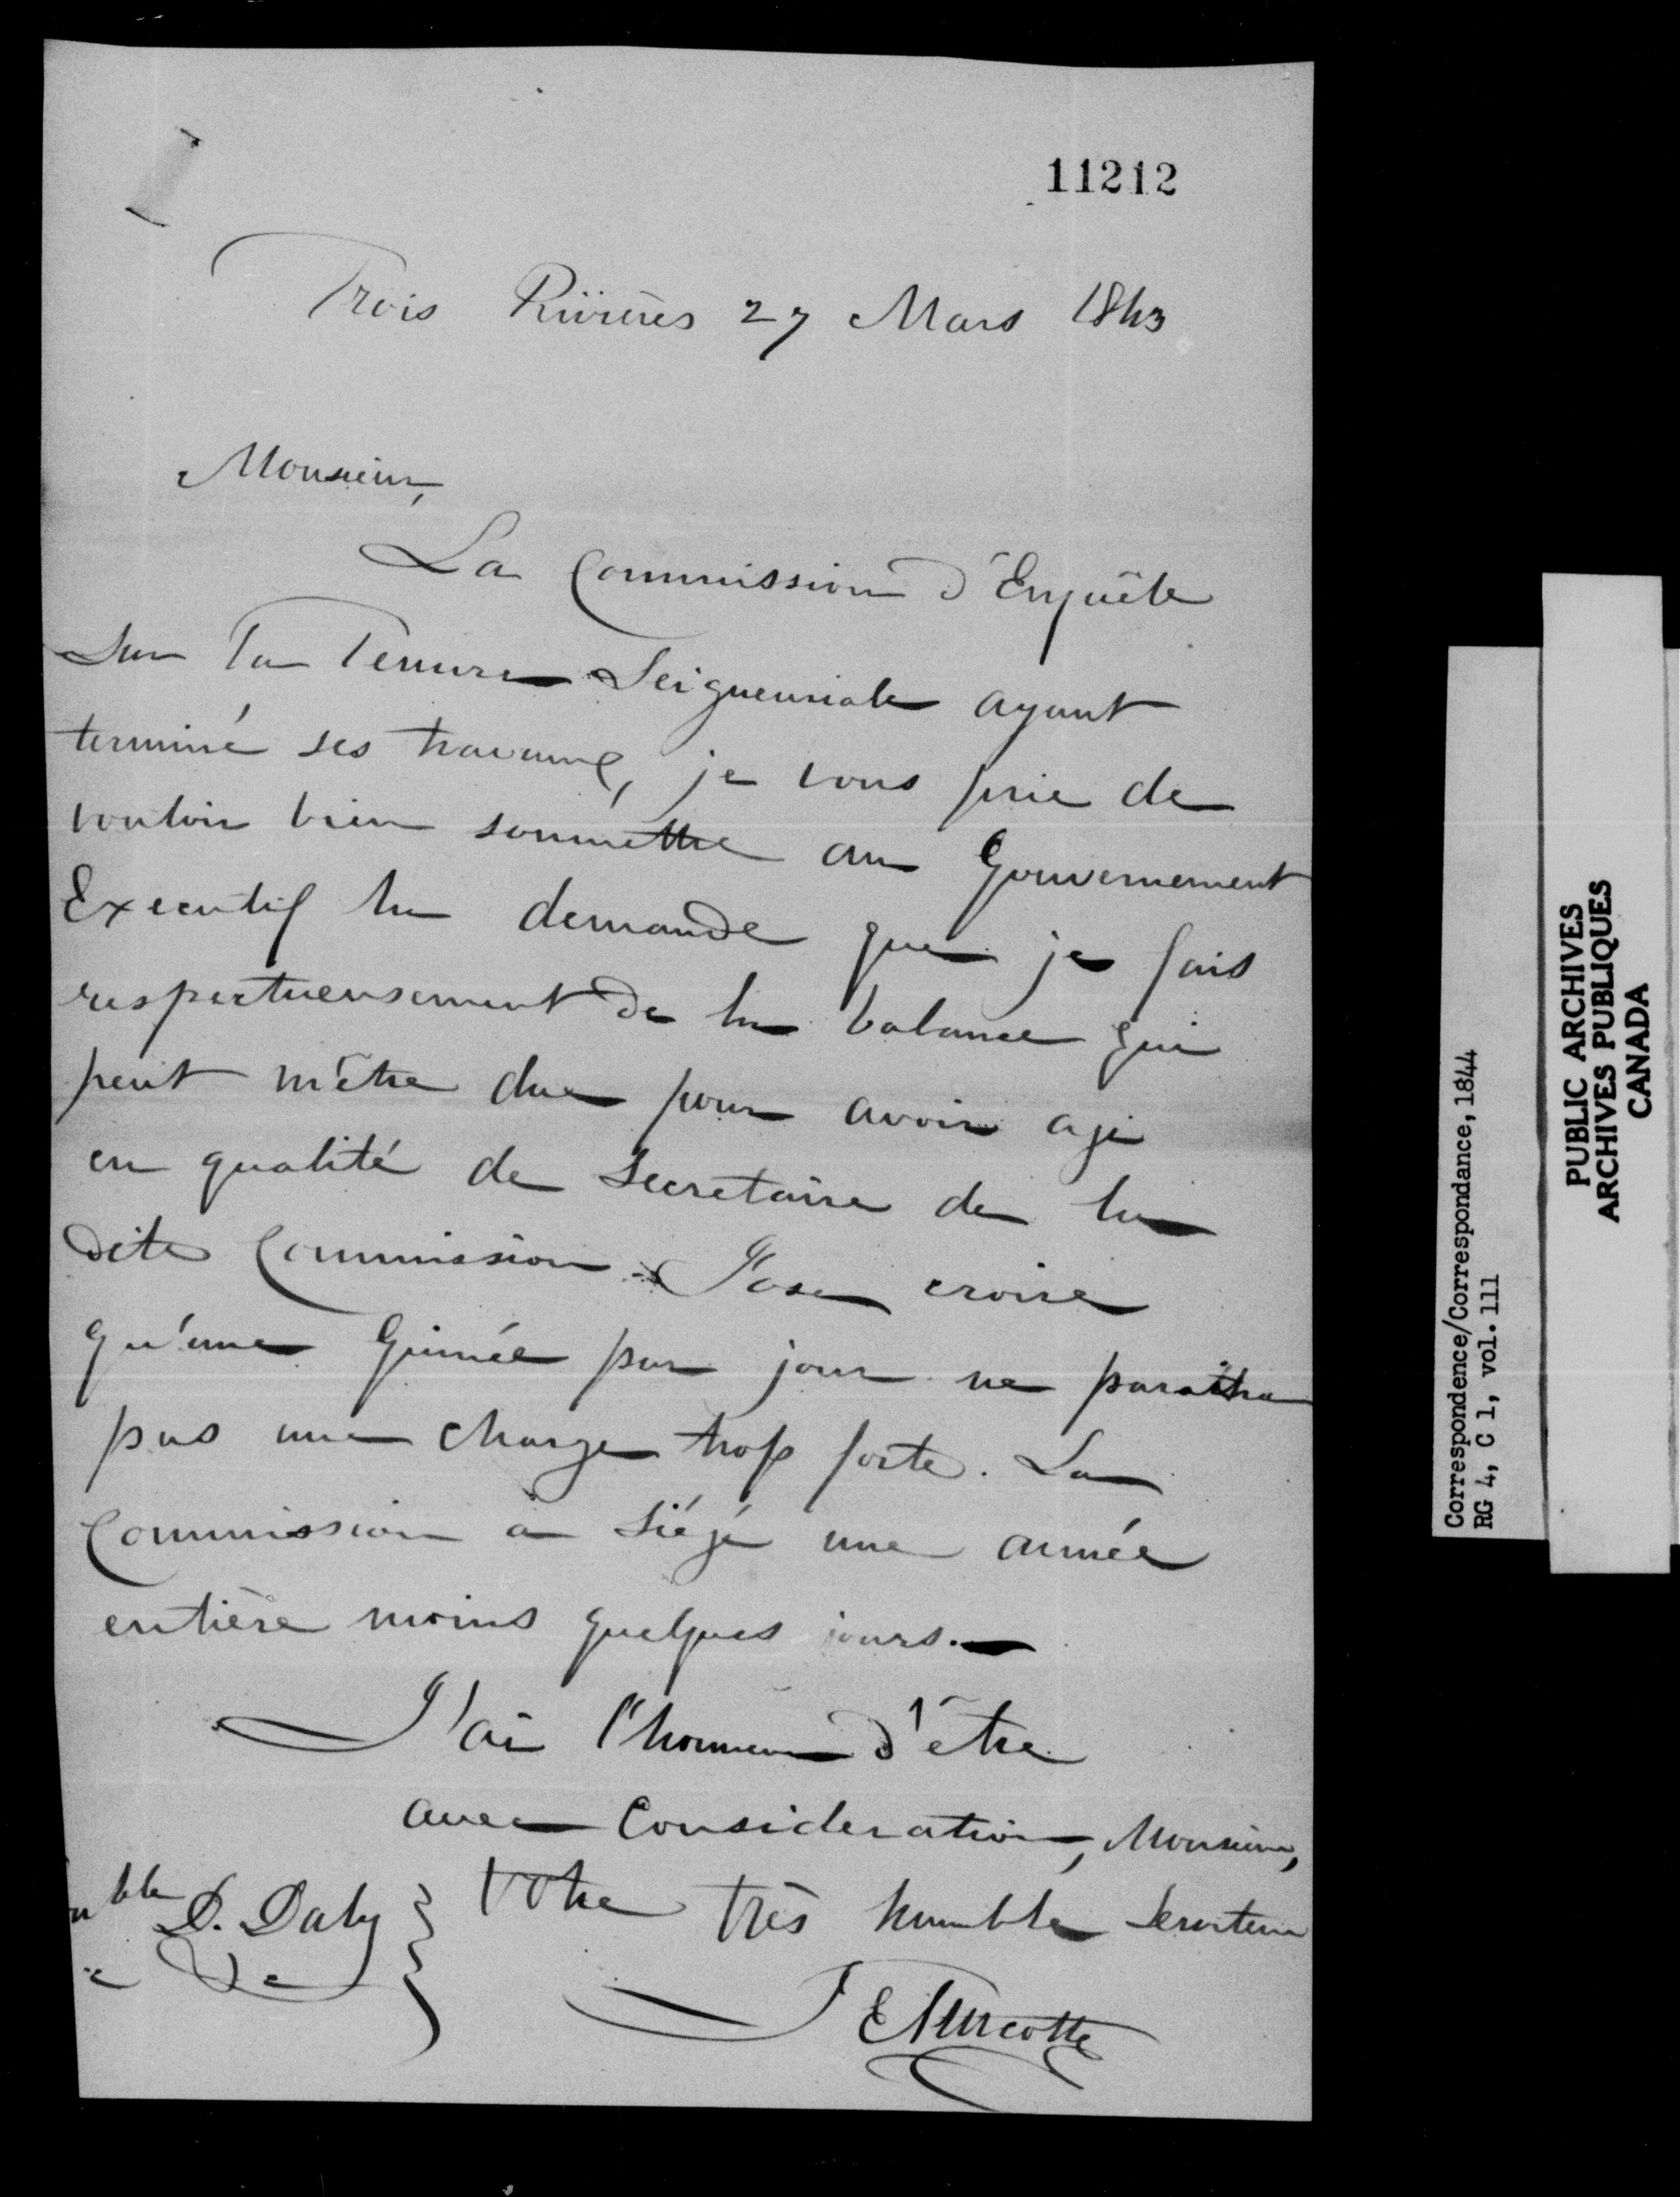 11212
Trois Rivières 27 Mars 1843
Monsieur,
La Commission d'Enquête
sur la Tenure Seigneuriale ayant
terminé ses travaux, je vous prie de
vouloir bien soumettre au Gouvernement
Executif la demande que je fais
respectueusement de la balance qui
peut m'être due pour avoir agi
en qualité de Secretaire de la
dite Commission. J'ose croire
qu'une Guinée par jour ne paraîtra
pas une charge trop forte. La
Commission a siégé une année
entière moins quelques jours.
J'ai l'honneur d'être
avec Consideration, Monsieur,
Votre très humble Serviteur
ble D. Daly
J E Turcotte
Correspondence/Correspondance, 1844
RG 4, C 1, vol. 111
PUBLIC ARCHIVES
ARCHIVES PUBLIQUES
CANADA